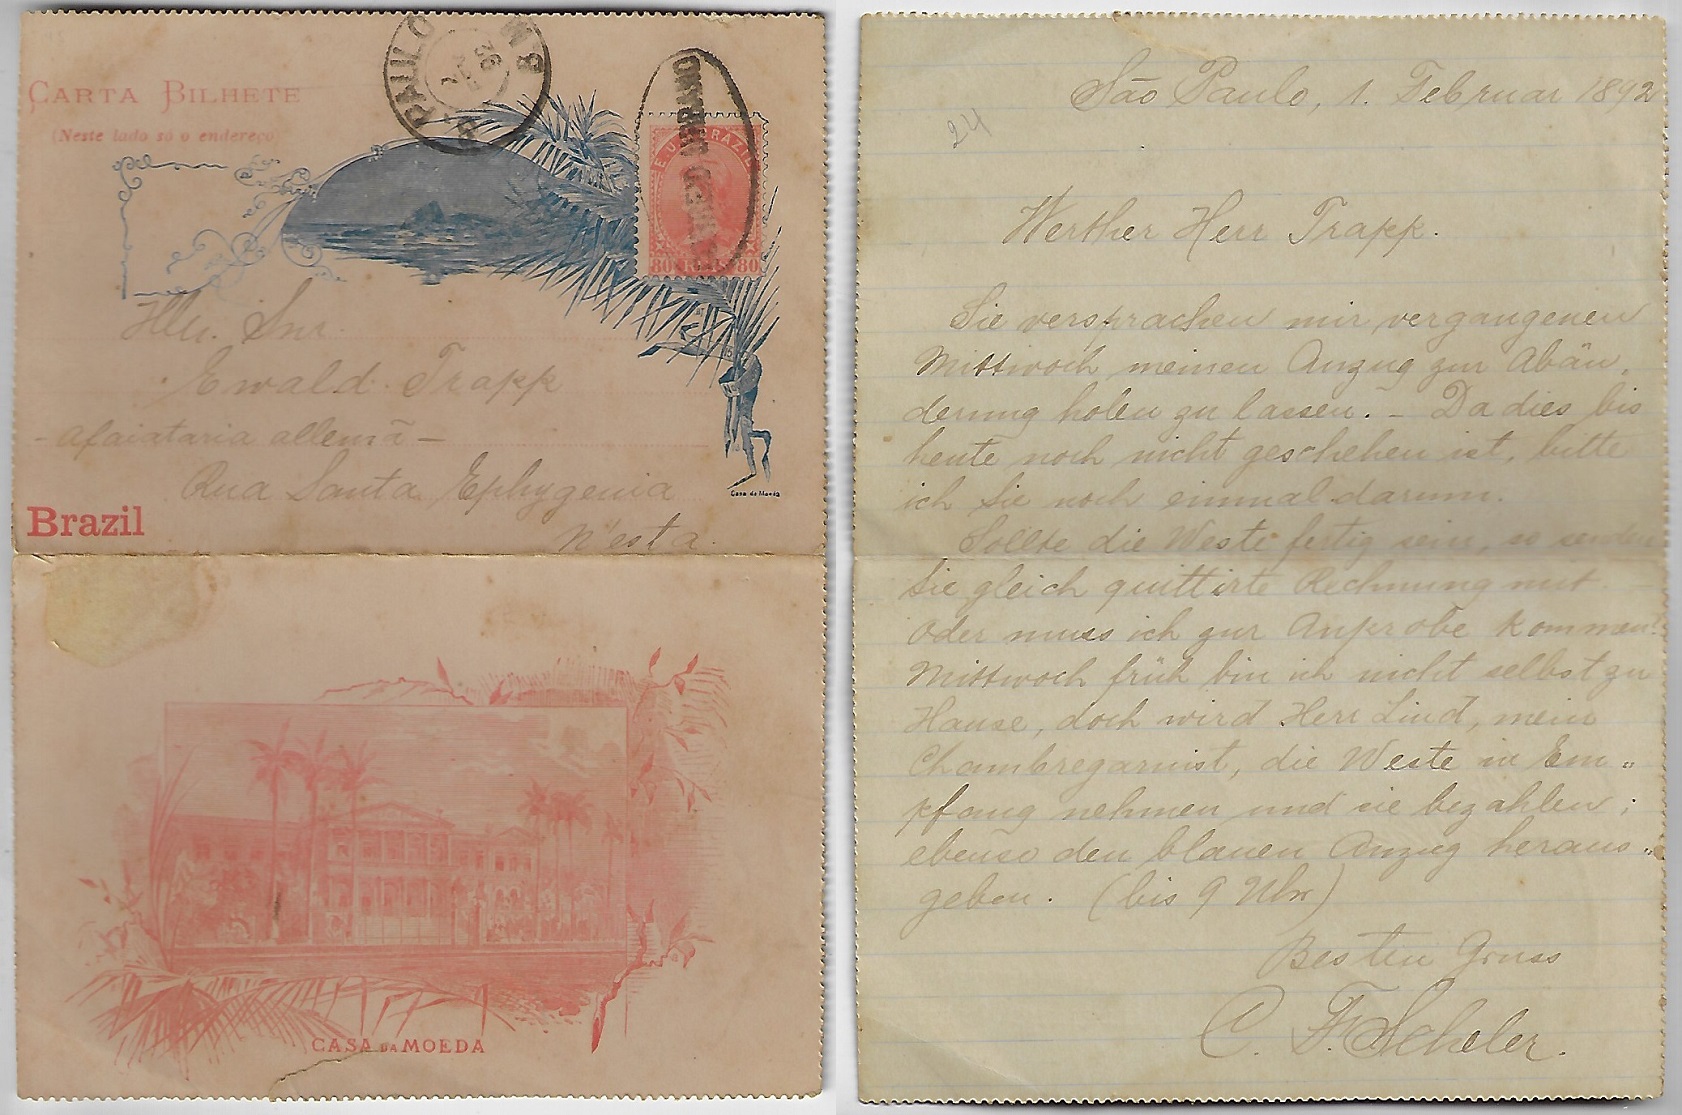 CARTA BILHETE
(Neste lado só o endereço
S. PAULO
E. U. BRAZIL
80 80
Illu. Snr.
Ewald Trapp
- Alfaiataria allemã -
Rua Santa Ephygenia
N'esta.
Casa da Moeda
Brazil
CASA DA MOEDA
São Paulo, 1. Februar 1892
24
Werther Herr Trapp.
Sie versprachen mir vergangenen
Mittwoch meinen Anzug zur Abän-
derung holen zu lassen. - Da dies bis
heute noch nicht geschehen ist, bitte
ich Sie noch einmal darum.
Sollte die Weste fertig sein, so senden
Sie gleich quittirte Rechnung mit
Oder muss ich zur Anprobe kommen?
Mittwoch früh bin ich nicht selbst zu
Hause, doch wird Herr Lind, mein
Chambregarnist, die Weste in Em„
pfang nehmen und sie bezahlen;
ebenso den blauen Anzug heraus„
geben. (bis 9 Uhr)
Besten Gruss
C. F. Scheler.